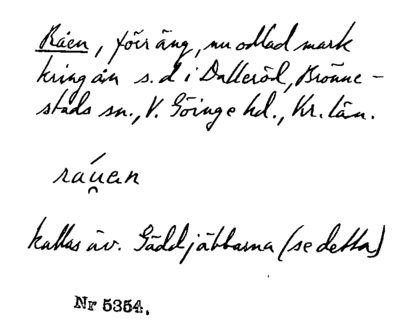 Råen, förr äng, nu odlad mark
kring ån s.d i Dalleröd, Brönne-
stads sn., V. Göinge hd., Kr. län.
ráu̯an
kallas äv. Gäddjäbbarna (se detta)
Nr 5354.